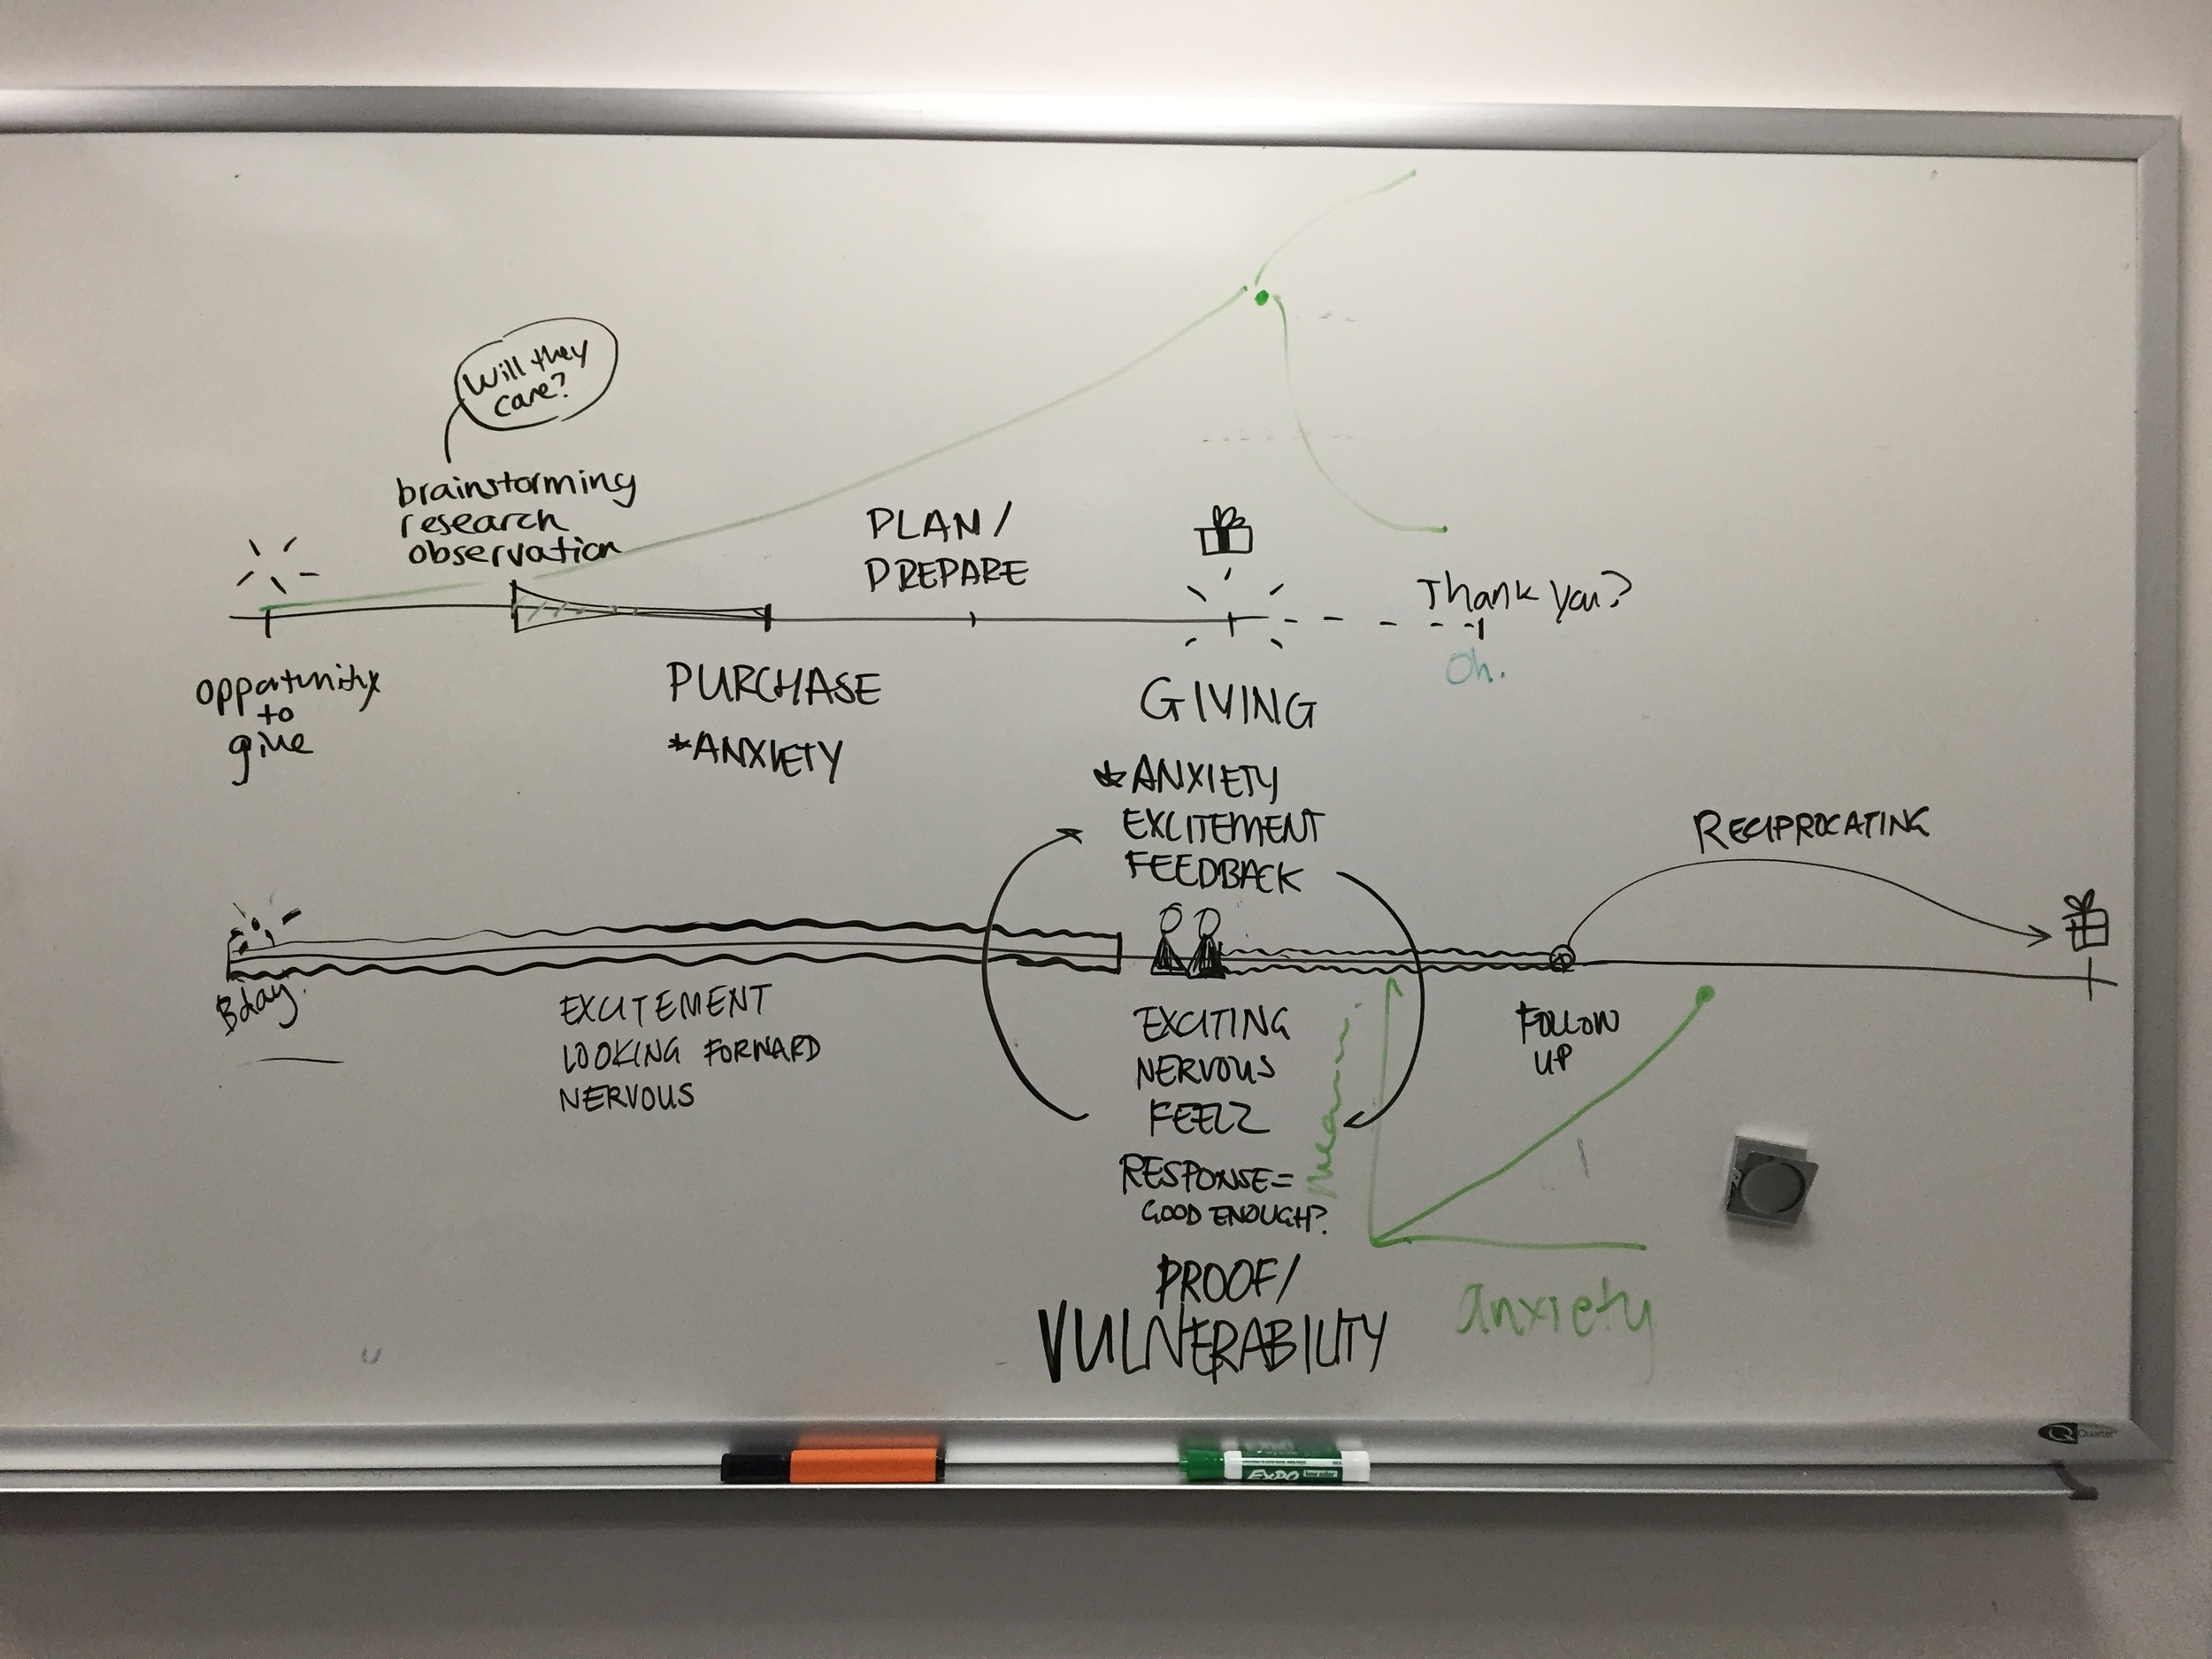 Will they
care?
brainstorming
research
observation
PLAN/
PREPARE
Thank you?
Oh.
opportunity
to
give
PURCHASE
*ANXIETY
GIVING
*ANXIETY
EXCITEMENT
FEEDBACK
RECIPROCATING
Bday
EXCITEMENT
LOOKING FORWARD
NERVOUS
EXCITING
NERVOUS
FEELZ
RESPONSE=
GOOD ENOUGH?
PROOF/
VULNERABILITY
FOLLOW
UP
anxiety
Quartet
EXPO